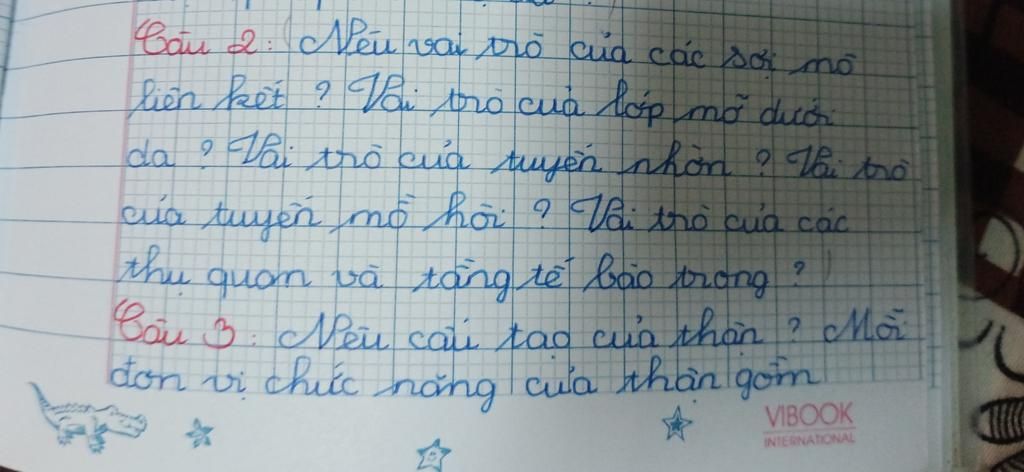 Câu 2: Nêu vai trò của các sợi mô
liên kết ? Vai trò của lớp mỡ dưới
da ? Vai trò của tuyến nhờn ? Vai trò
của tuyến mồ hôi ? Vai trò của các
thụ quan và tầng tế bào trong ?
Câu 3: Nêu cấu tạo của thận ? Mỗi
đơn vị chức năng của thận gồm
VIBOOK
INTERNATIONAL